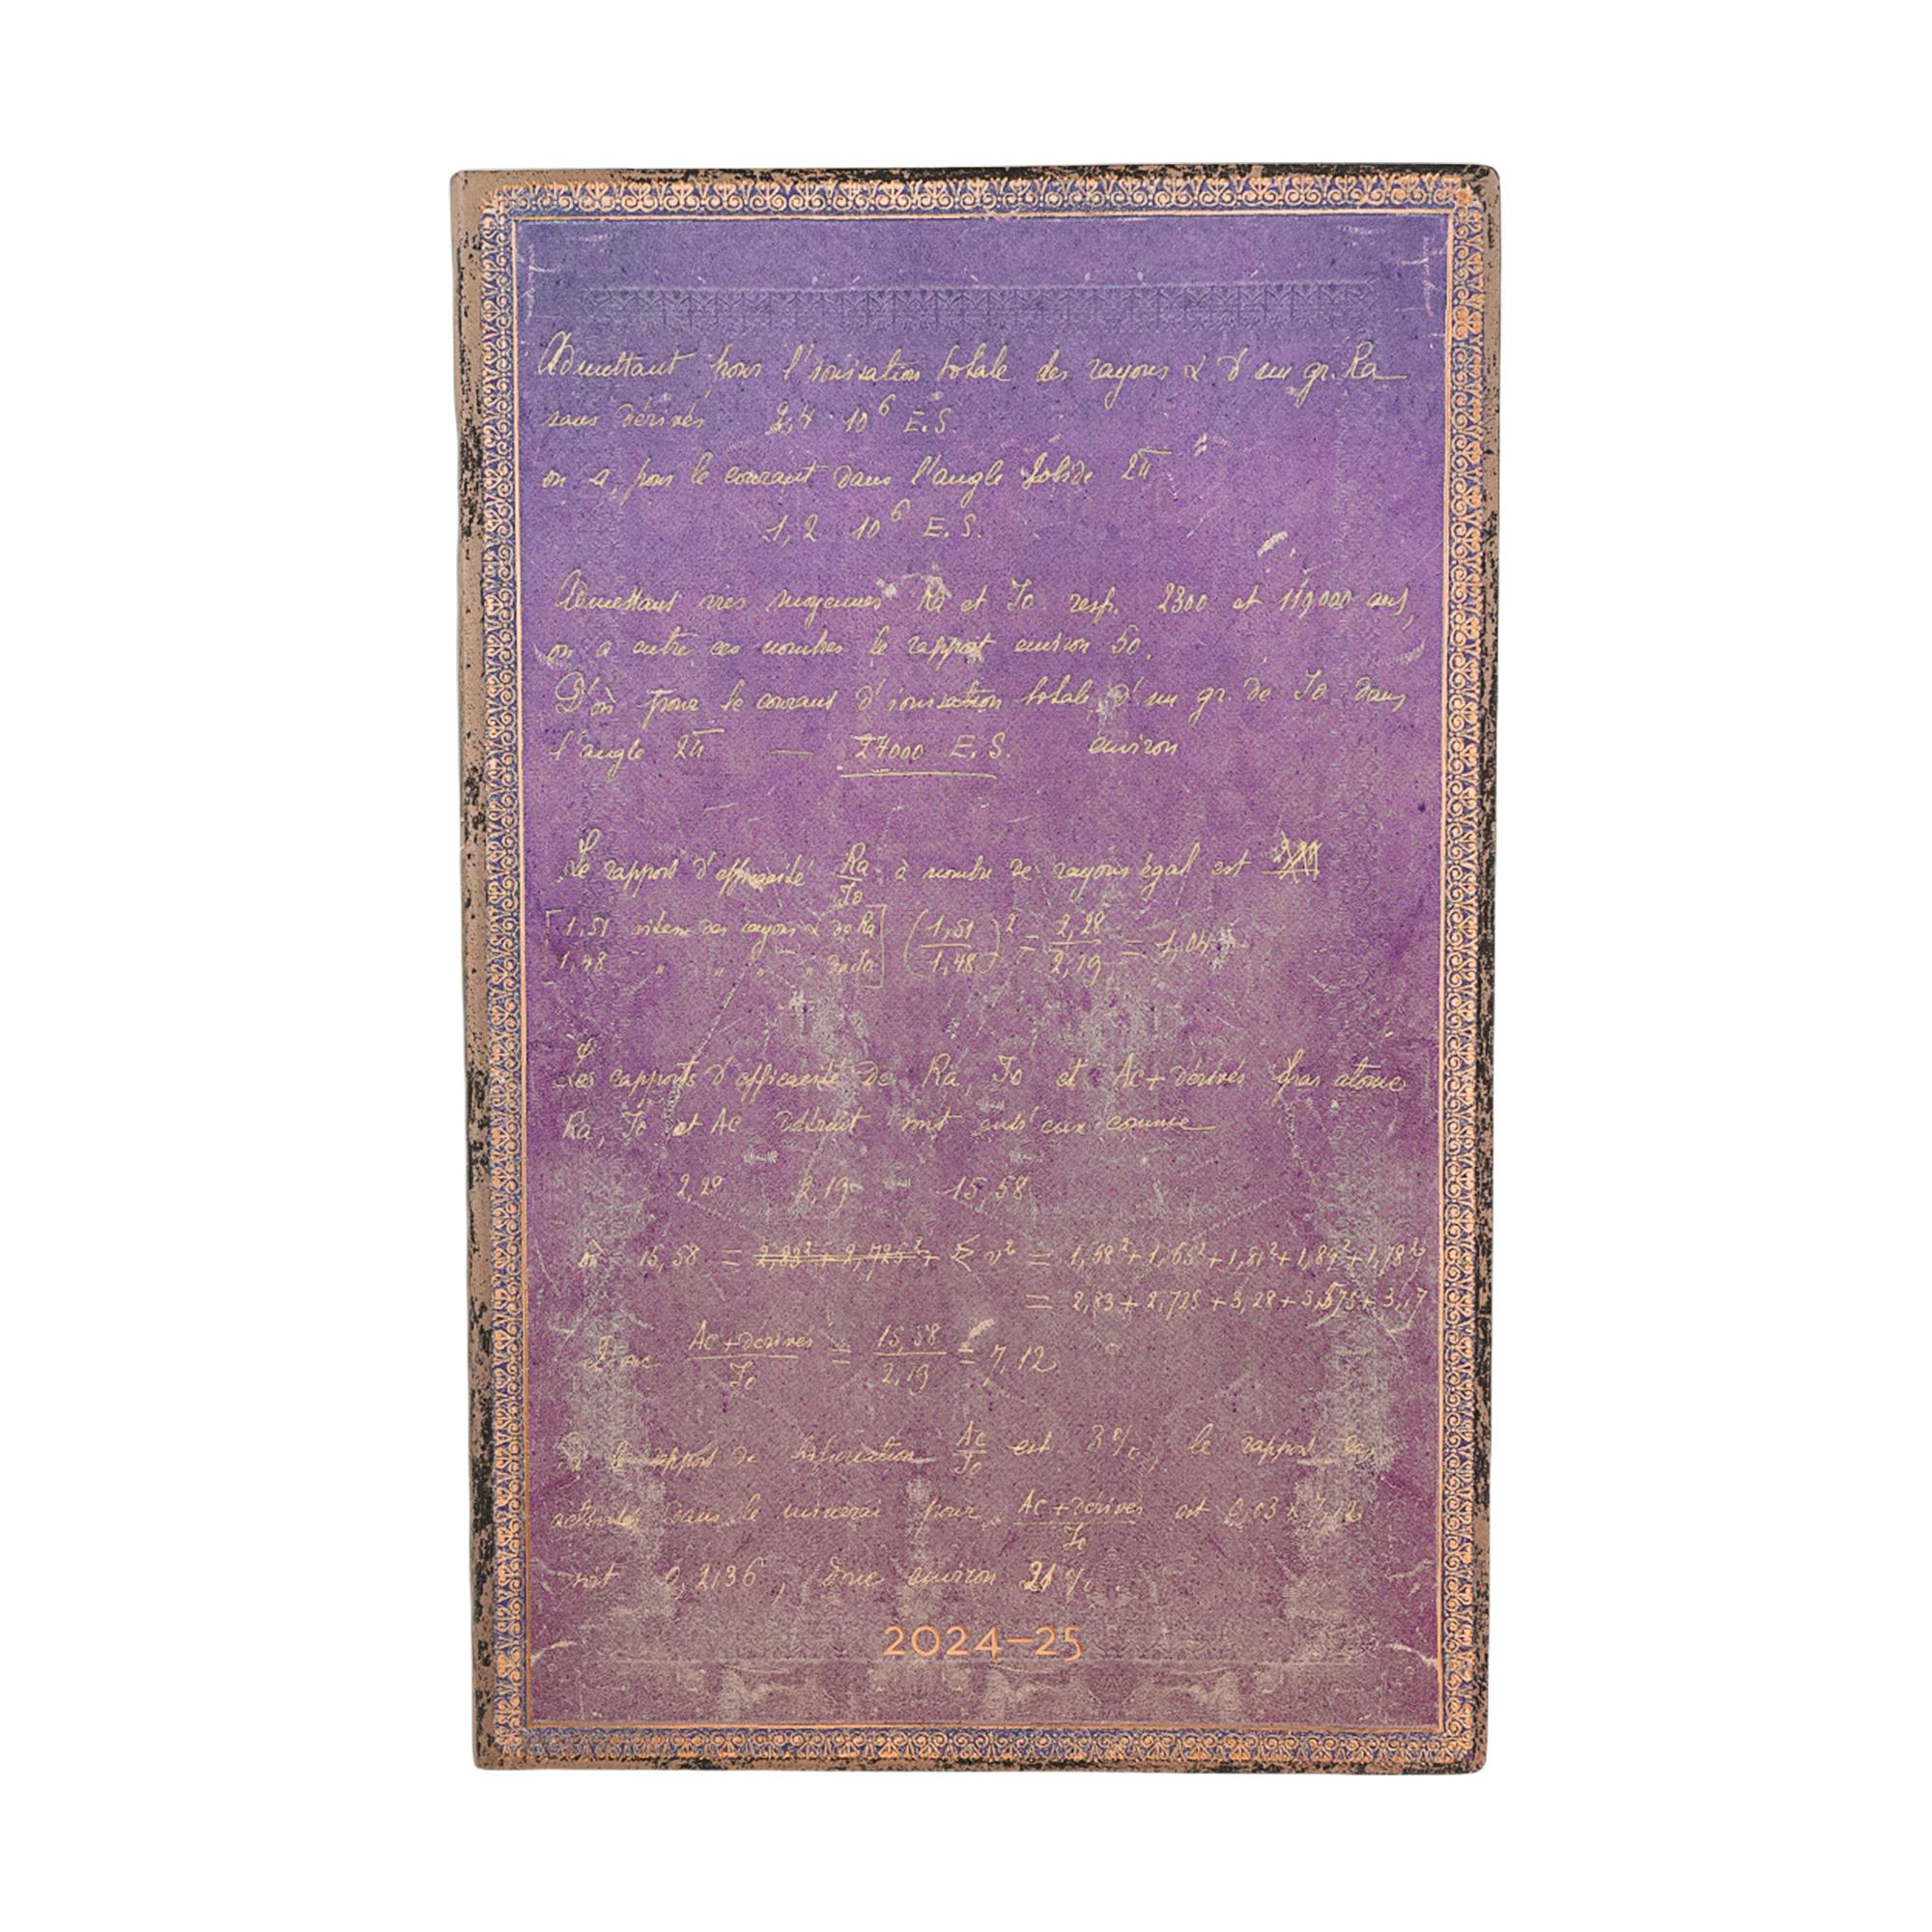 Admettant pour l'ionisation totale des rayons α d'un gr. Ra
sans dérivés 2,4 · 10⁶ E.S.
on a, pour le courant dans l'angle solide 2π
1,2 · 10⁶ E.S.
Admettant vies moyennes Ra et Io resp. 2300 et 119000 ans,
on a entre ces nombres le rapport environ 50.
D'où pour le courant d'ionisation totale d'un gr. de Io dans
l'angle 2π — 24000 E.S. environ
Le rapport d'efficacité Ra/Io à nombre de rayons égal est
[1,51 vitesse des rayons α de Ra
1,48 " " " " de Io] (1,51/1,48)² = 2,28/2,19 = 1,04
Les rapports d'efficacité de Ra, Io et Ac+dérivés par atome
Ra, Io et Ac détruit sont entre eux comme
2,28 2,19 15,58
où 15,58 = 2,83² + 2,725² + Σ v² = 1,68²+1,65²+1,81²+1,89²+1,78²
= 2,83 + 2,725 + 3,28 + 3,575 + 3,17
Donc Ac+dérivés/Io = 15,58/2,19 = 7,12
Si le rapport de bifurcation Ac/Io est 3%, le rapport des
activités dans le minerai pour Ac+dérivés/Io est 0,03 × 7,12
soit 0,2136, donc environ 21%.
2024–25